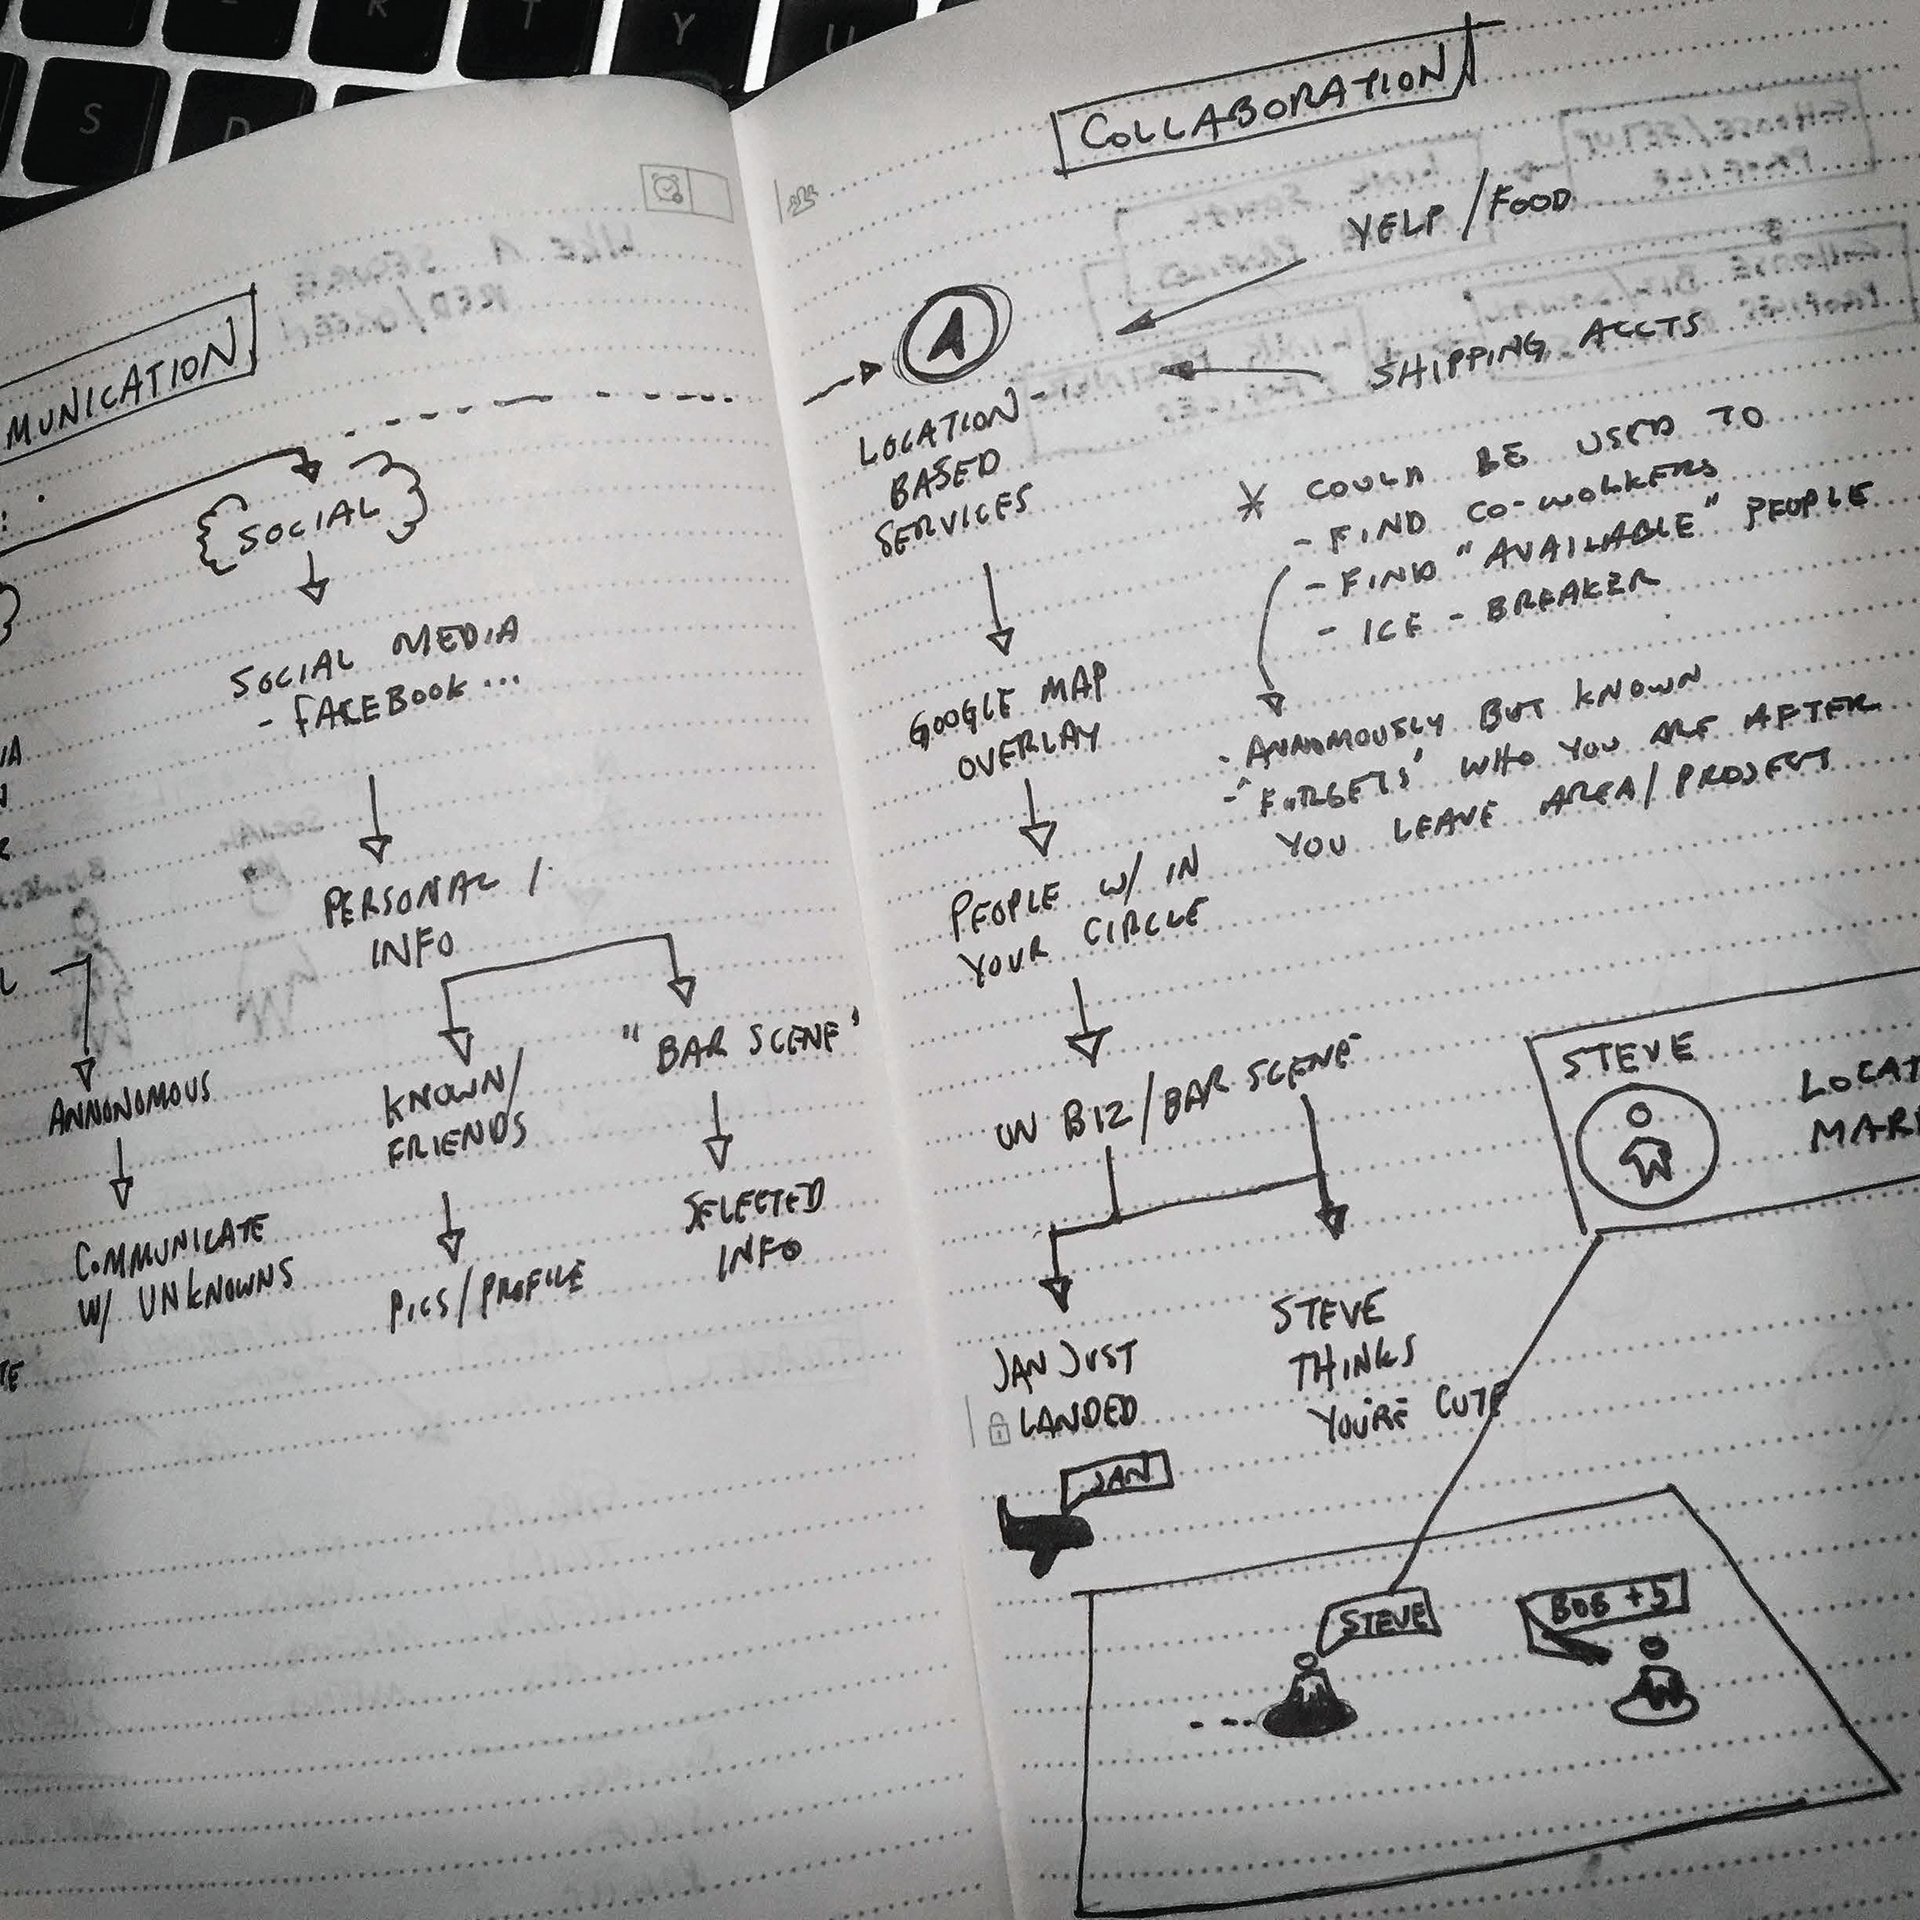 R
T
Y
U
S
D
MUNICATION
SOCIAL
SOCIAL MEDIA
- FACEBOOK...
PERSONAL /
INFO
ANNONOMOUS
COMMUNICATE
W/ UNKNOWNS
KNOWN/
FRIENDS
PICS/PROFILE
"BAR SCENE"
SELECTED
INFO
COLLABORATION
YELP/FOOD
SHIPPING ACCTS
LOCATION-
BASED
SERVICES
* COULD BE USED TO
- FIND CO-WORKERS
- FIND "AVAILABLE" PEOPLE
- ICE - BREAKER
- ANNOMOUSLY BUT KNOWN
- 'FORGETS' WHO YOU ARE AFTER
YOU LEAVE AREA/PROJECT
GOOGLE MAP
OVERLAY
PEOPLE W/IN
YOUR CIRCLE
ON BIZ/BAR SCENE
JAN JUST
LANDED
STEVE
THINKS
YOU'RE CUTE
JAN
STEVE
LOCAT
MAR
STEVE
BOB +5